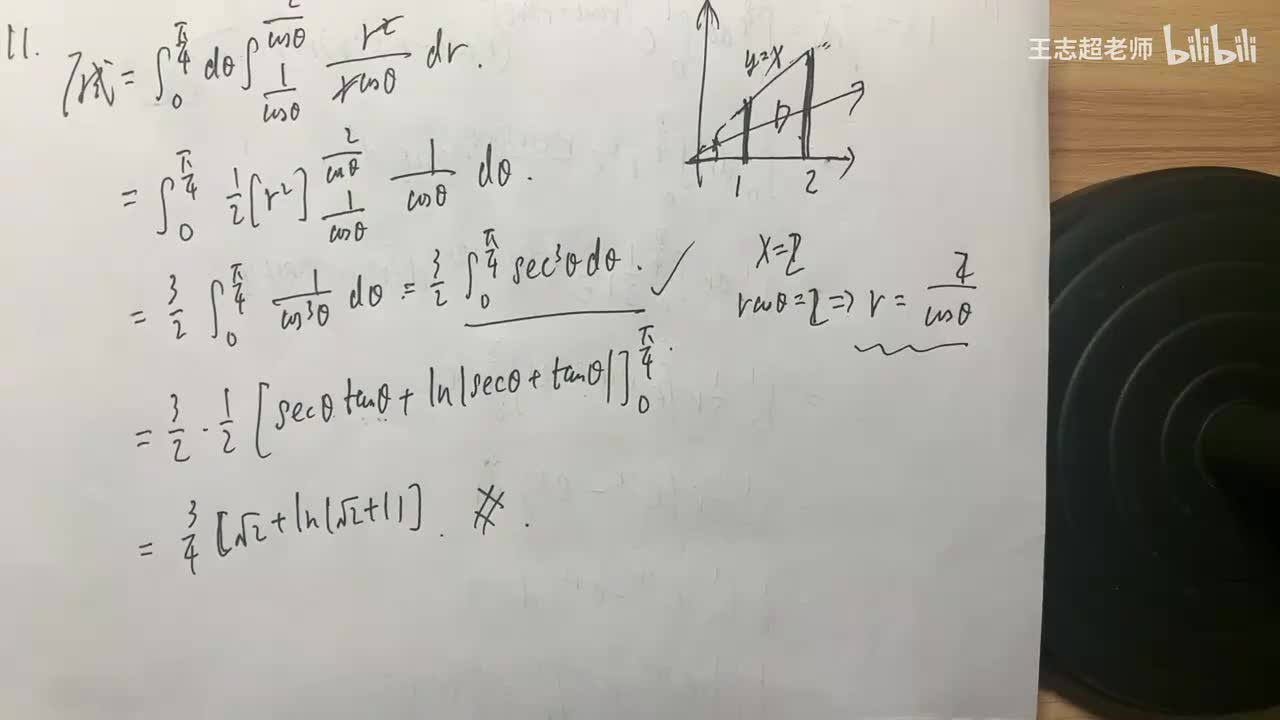 11. 原式 = ∫_0^{π/4} dθ ∫_{1/cosθ}^{2/cosθ} r²/(r cosθ) dr.
= ∫_0^{π/4} 1/2 [r²]_{1/cosθ}^{2/cosθ} 1/cosθ dθ.
= 3/2 ∫_0^{π/4} 1/cos³θ dθ = 3/2 ∫_0^{π/4} sec³θ dθ. ✓
= 3/2 · 1/2 [secθ tanθ + ln|secθ + tanθ|]_0^{π/4}.
= 3/4 [√2 + ln(√2+1)]. #.
y=x
D
1 2
x=2
r cosθ = 2 => r = 2/cosθ
王志超老师 bilibili